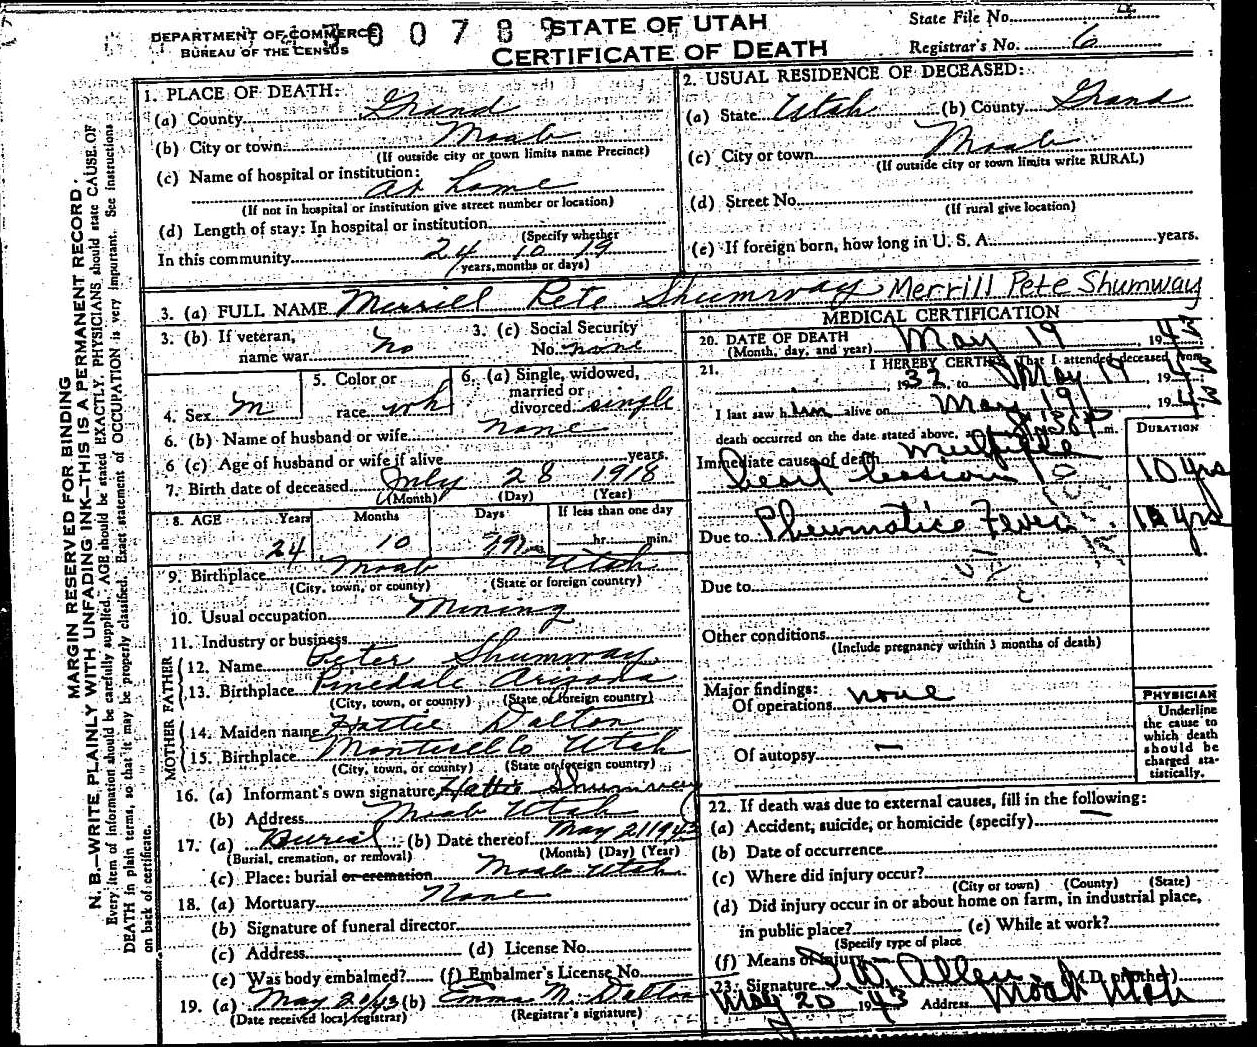 DEPARTMENT OF COMMERCE
BUREAU OF THE CENSUS
00789
STATE OF UTAH
CERTIFICATE OF DEATH
State File No. 4
Registrar's No. 6
MARGIN RESERVED FOR BINDING
N. B.—WRITE PLAINLY WITH UNFADING INK—THIS IS A PERMANENT RECORD.
Every item of information should be carefully supplied. AGE should be stated EXACTLY. PHYSICIANS should state CAUSE OF
DEATH in plain terms, so that it may be properly classified. Exact statement of OCCUPATION is very important. See instructions
on back of certificate.
1. PLACE OF DEATH:
(a) County Grand
(b) City or town Moab
(If outside city or town limits name Precinct)
(c) Name of hospital or institution:
at home
(If not in hospital or institution give street number or location)
(d) Length of stay: In hospital or institution
(Specify whether
In this community 24 10 19
years, months or days)
2. USUAL RESIDENCE OF DECEASED:
(a) State Utah (b) County Grand
(c) City or town Moab
(If outside city or town limits write RURAL)
(d) Street No.
(If rural give location)
(e) If foreign born, how long in U. S. A. years.
3. (a) FULL NAME Merrill Pete Shumway Merrill Pete Shumway
3. (b) If veteran,
name war no
3. (c) Social Security
No. none
4. Sex m
5. Color or
race wh
6. (a) Single, widowed,
married or
divorced single
6. (b) Name of husband or wife none
6 (c) Age of husband or wife if alive years.
7. Birth date of deceased July 28 1918
(Month) (Day) (Year)
8. AGE Years Months Days If less than one day
24 10 hr. min.
9. Birthplace Moab Utah
(City, town, or county) (State or foreign country)
10. Usual occupation Mining
11. Industry or business
FATHER
12. Name Peter Shumway
13. Birthplace Pinedale Arizona
(City, town, or county) (State or foreign country)
MOTHER
14. Maiden name Hattie Dalton
15. Birthplace Monticello Utah
(City, town, or county) (State or foreign country)
16. (a) Informant's own signature Hattie Shumway
(b) Address Moab Utah
17. (a) Burial (b) Date thereof May 21 1943
(Burial, cremation, or removal) (Month) (Day) (Year)
(c) Place: burial or cremation Moab Utah
18. (a) Mortuary None
(b) Signature of funeral director
(c) Address (d) License No.
(e) Was body embalmed? (f) Embalmer's License No.
19. (a) May 20/43 (b) Emma M. Dalton
(Date received local registrar) (Registrar's signature)
MEDICAL CERTIFICATION
20. DATE OF DEATH
(Month, day, and year) May 19, 1943
21. I HEREBY CERTIFY, That I attended deceased from
1932 to May 19 1943
I last saw him alive on May 19, 1943
death occurred on the date stated above, m.
DURATION
Immediate cause of death multiple
heart lesions 10 yrs
Due to Rheumatic Fever yrs
Due to
Other conditions
(Include pregnancy within 3 months of death)
Major findings:
Of operations none
Of autopsy —
PHYSICIAN
Underline
the cause to
which death
should be
charged sta-
tistically.
22. If death was due to external causes, fill in the following:
(a) Accident, suicide, or homicide (specify) —
(b) Date of occurrence
(c) Where did injury occur?
(City or town) (County) (State)
(d) Did injury occur in or about home on farm, in industrial place,
in public place? (e) While at work?
(Specify type of place
(f) Means of injury —
23. Signature Allen (M.D. or other)
May 20 1943 Address Moab Utah